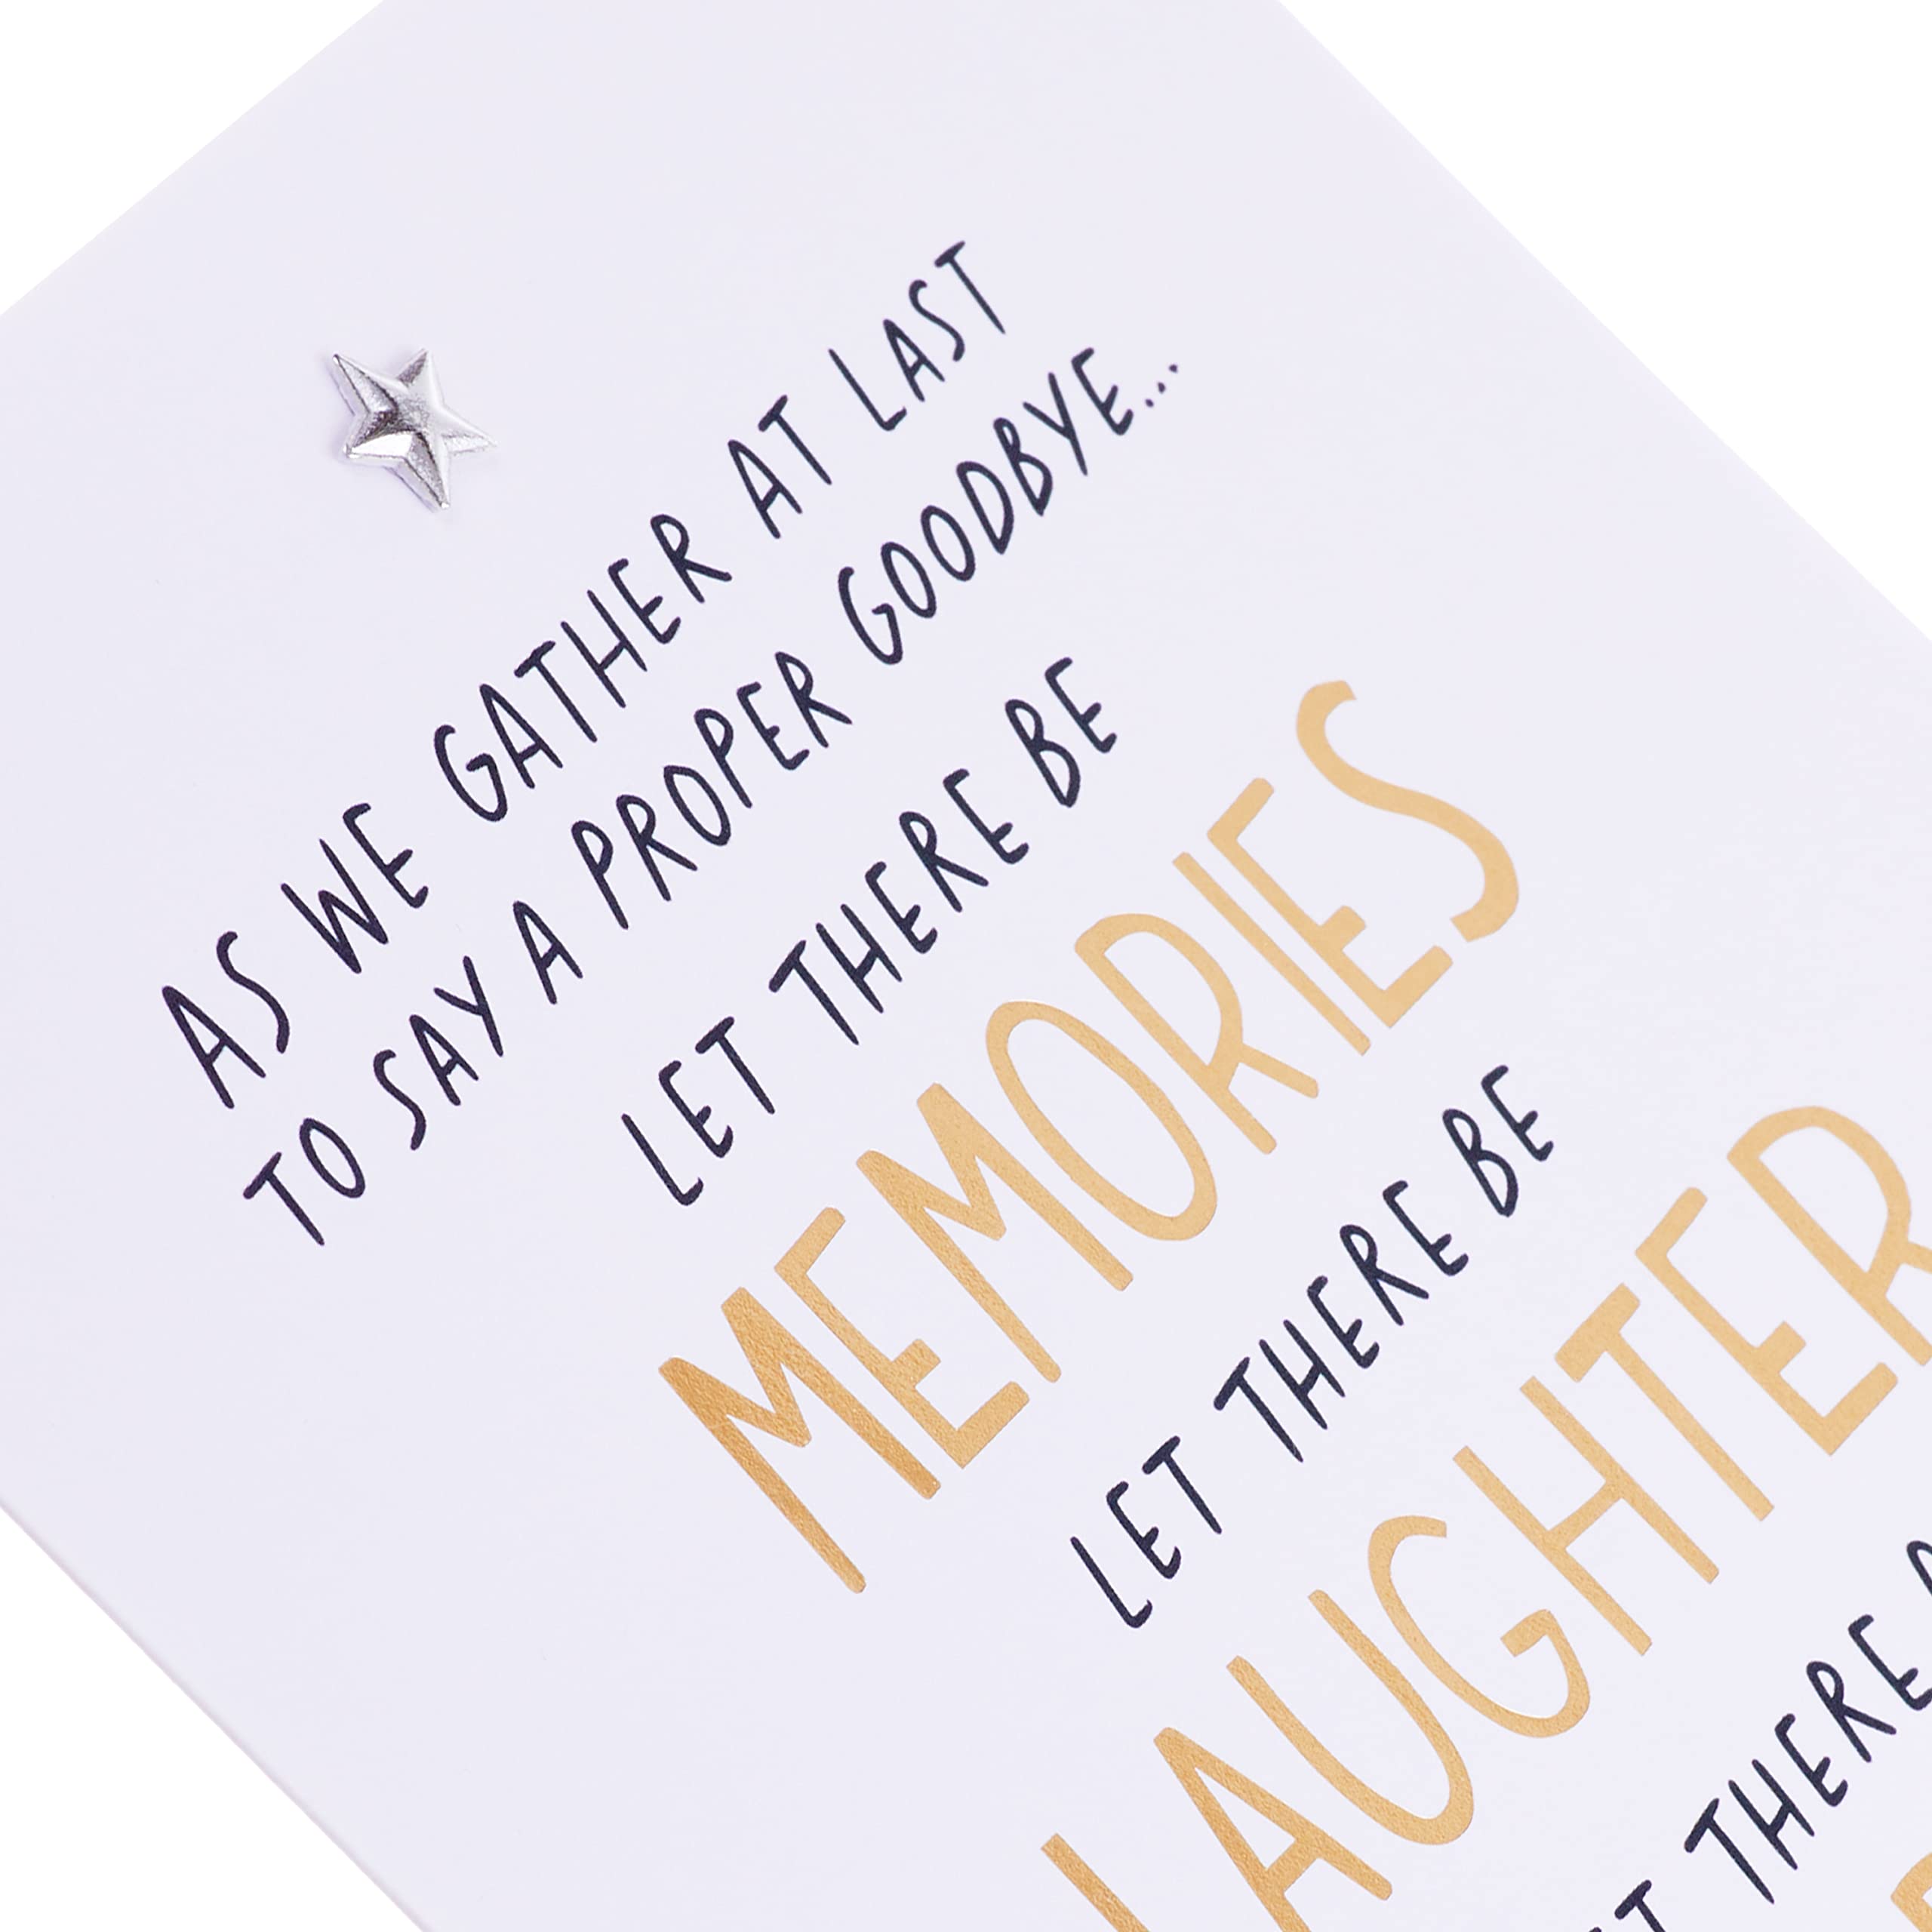 AS WE GATHER AT LAST
TO SAY A PROPER GOODBYE...
LET THERE BE
MEMORIES
LET THERE BE
LAUGHTER
THERE